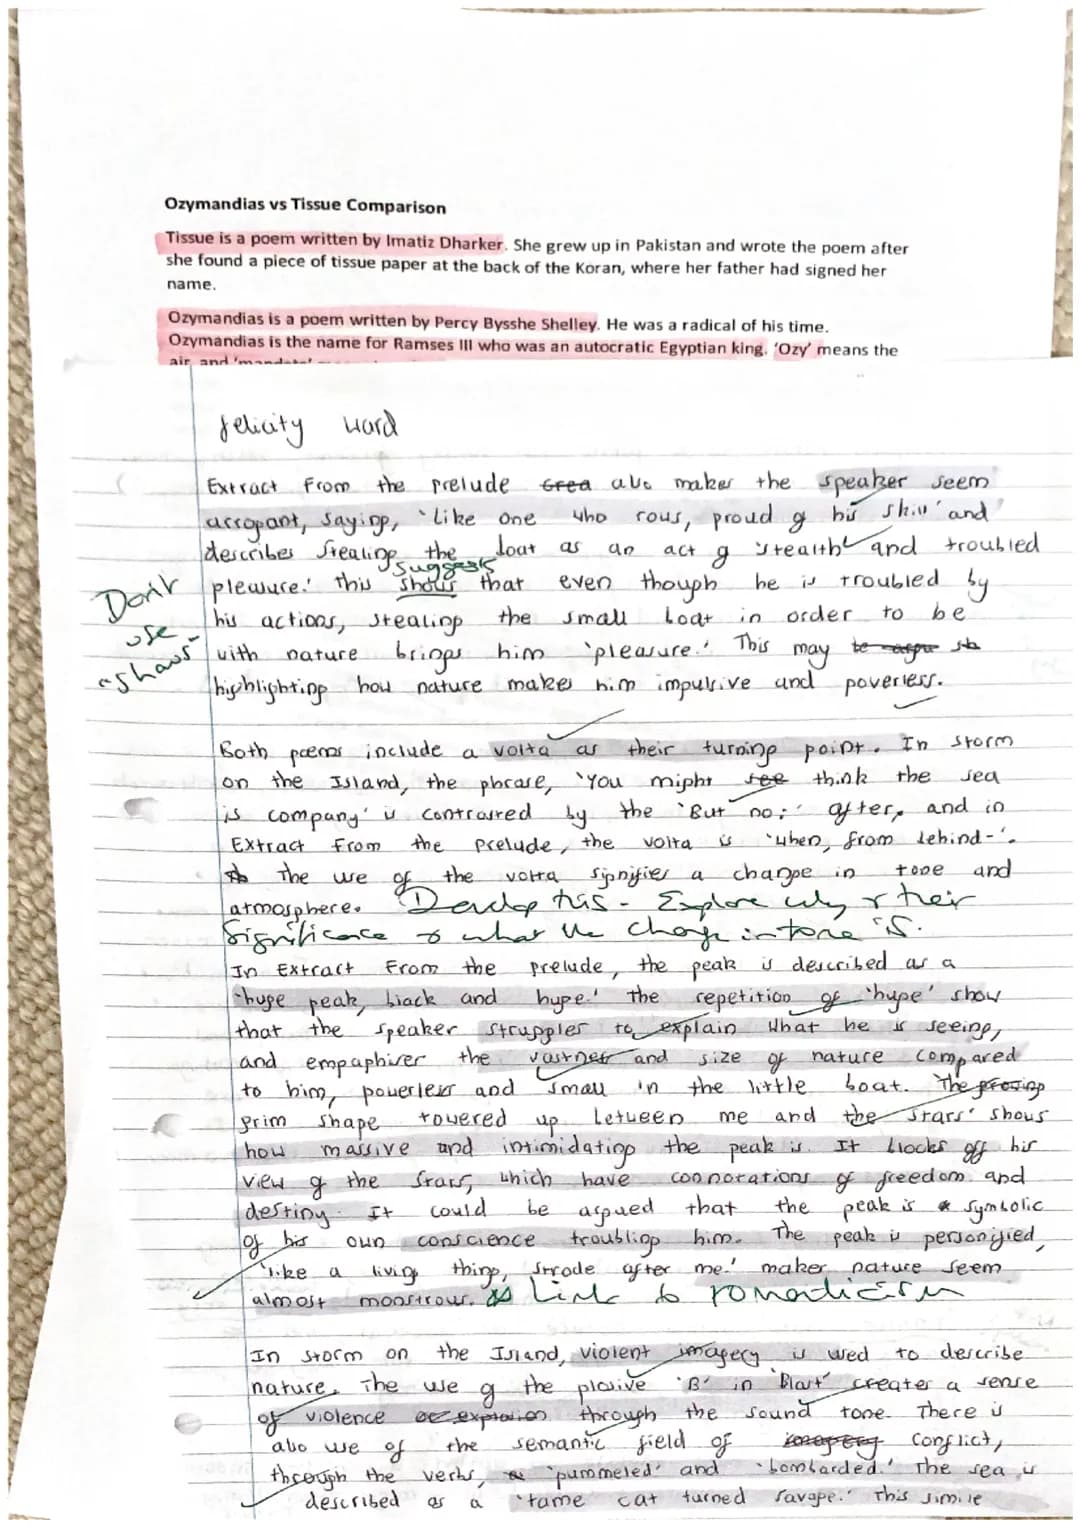 Ozymandias vs Tissue Comparison
Tissue is a poem written by Imatiz Dharker. She grew up in Pakistan and wrote the poem after
she found a piece of tissue paper at the back of the Koran, where her father had signed her
name.
Ozymandias is a poem written by Percy Bysshe Shelley. He was a radical of his time.
Ozymandias is the name for Ramses III who was an autocratic Egyptian king. 'Ozy' means the
air and
felicity ward
Extract from the prelude also makes the speaker seem
arrogant, saying, 'Like one who rows, proud of his skill' and
describes stealing the boat as an act of 'stealth and troubled
suggests
pleasure.' This shows that even though he is troubled by
Don't
use
"shows"
his actions, stealing the small boat in order to be
with nature brings him 'pleasure.' This may
highlighting how nature makes him impulsive and powerless.
Both poems include a volta as their turning point. In storm
on the Island, the phrase, 'You might see think the sea
is company' is contrasted by the 'But no:' after, and in
Extract from the prelude, the volta is 'when, from behind-'.
The use of the volta signifies a change in tone and
atmosphere. Develop this - Explore why & their
significance & what the change in tone is.
In Extract From the prelude, the peak is described as a
'huge peak, black and huge.' The repetition of 'huge' show
that the speaker struggles to explain what he is seeing,
and empaphises the vastness and size of nature compared
to him, powerless and small in the little boat. 'The growing
grim shape towered up between me and the stars' shows
how massive and intimidating the peak is. It blocks off his
view of the stars, which have connotations of freedom and
destiny. It could be argued that the peak is symbolic
of his own conscience troubling him. The peak is personified,
'like a living thing, strode after me.' makes nature seem
almost monstrous. Link to romanticism
In storm on the Island, violent imagery is used to describe
nature. The use of the plosive 'B' in 'Blast' creates a sense
of violence or explosion through the sound tone. There is
also use of the semantic field of imagery conflict,
through the verbs, 'pummeled' and 'bombarded.' The sea is
described as a 'tame cat turned savage.' This simile